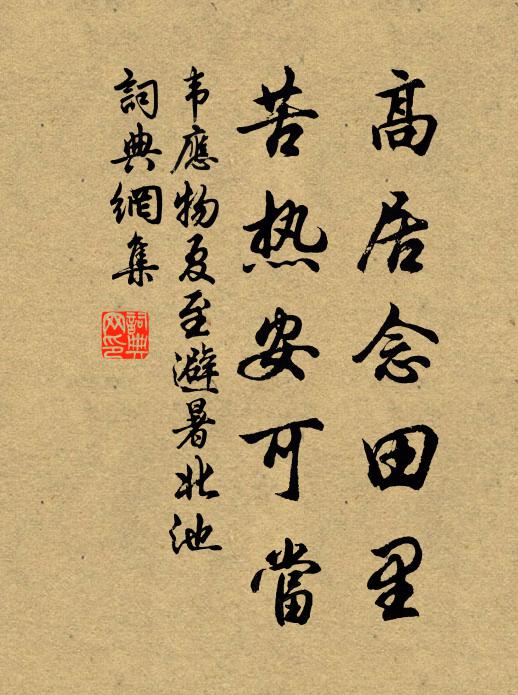 高居念田里
苦热安可當
韦應物夏至避暑北池
詞典網集
詞典網印